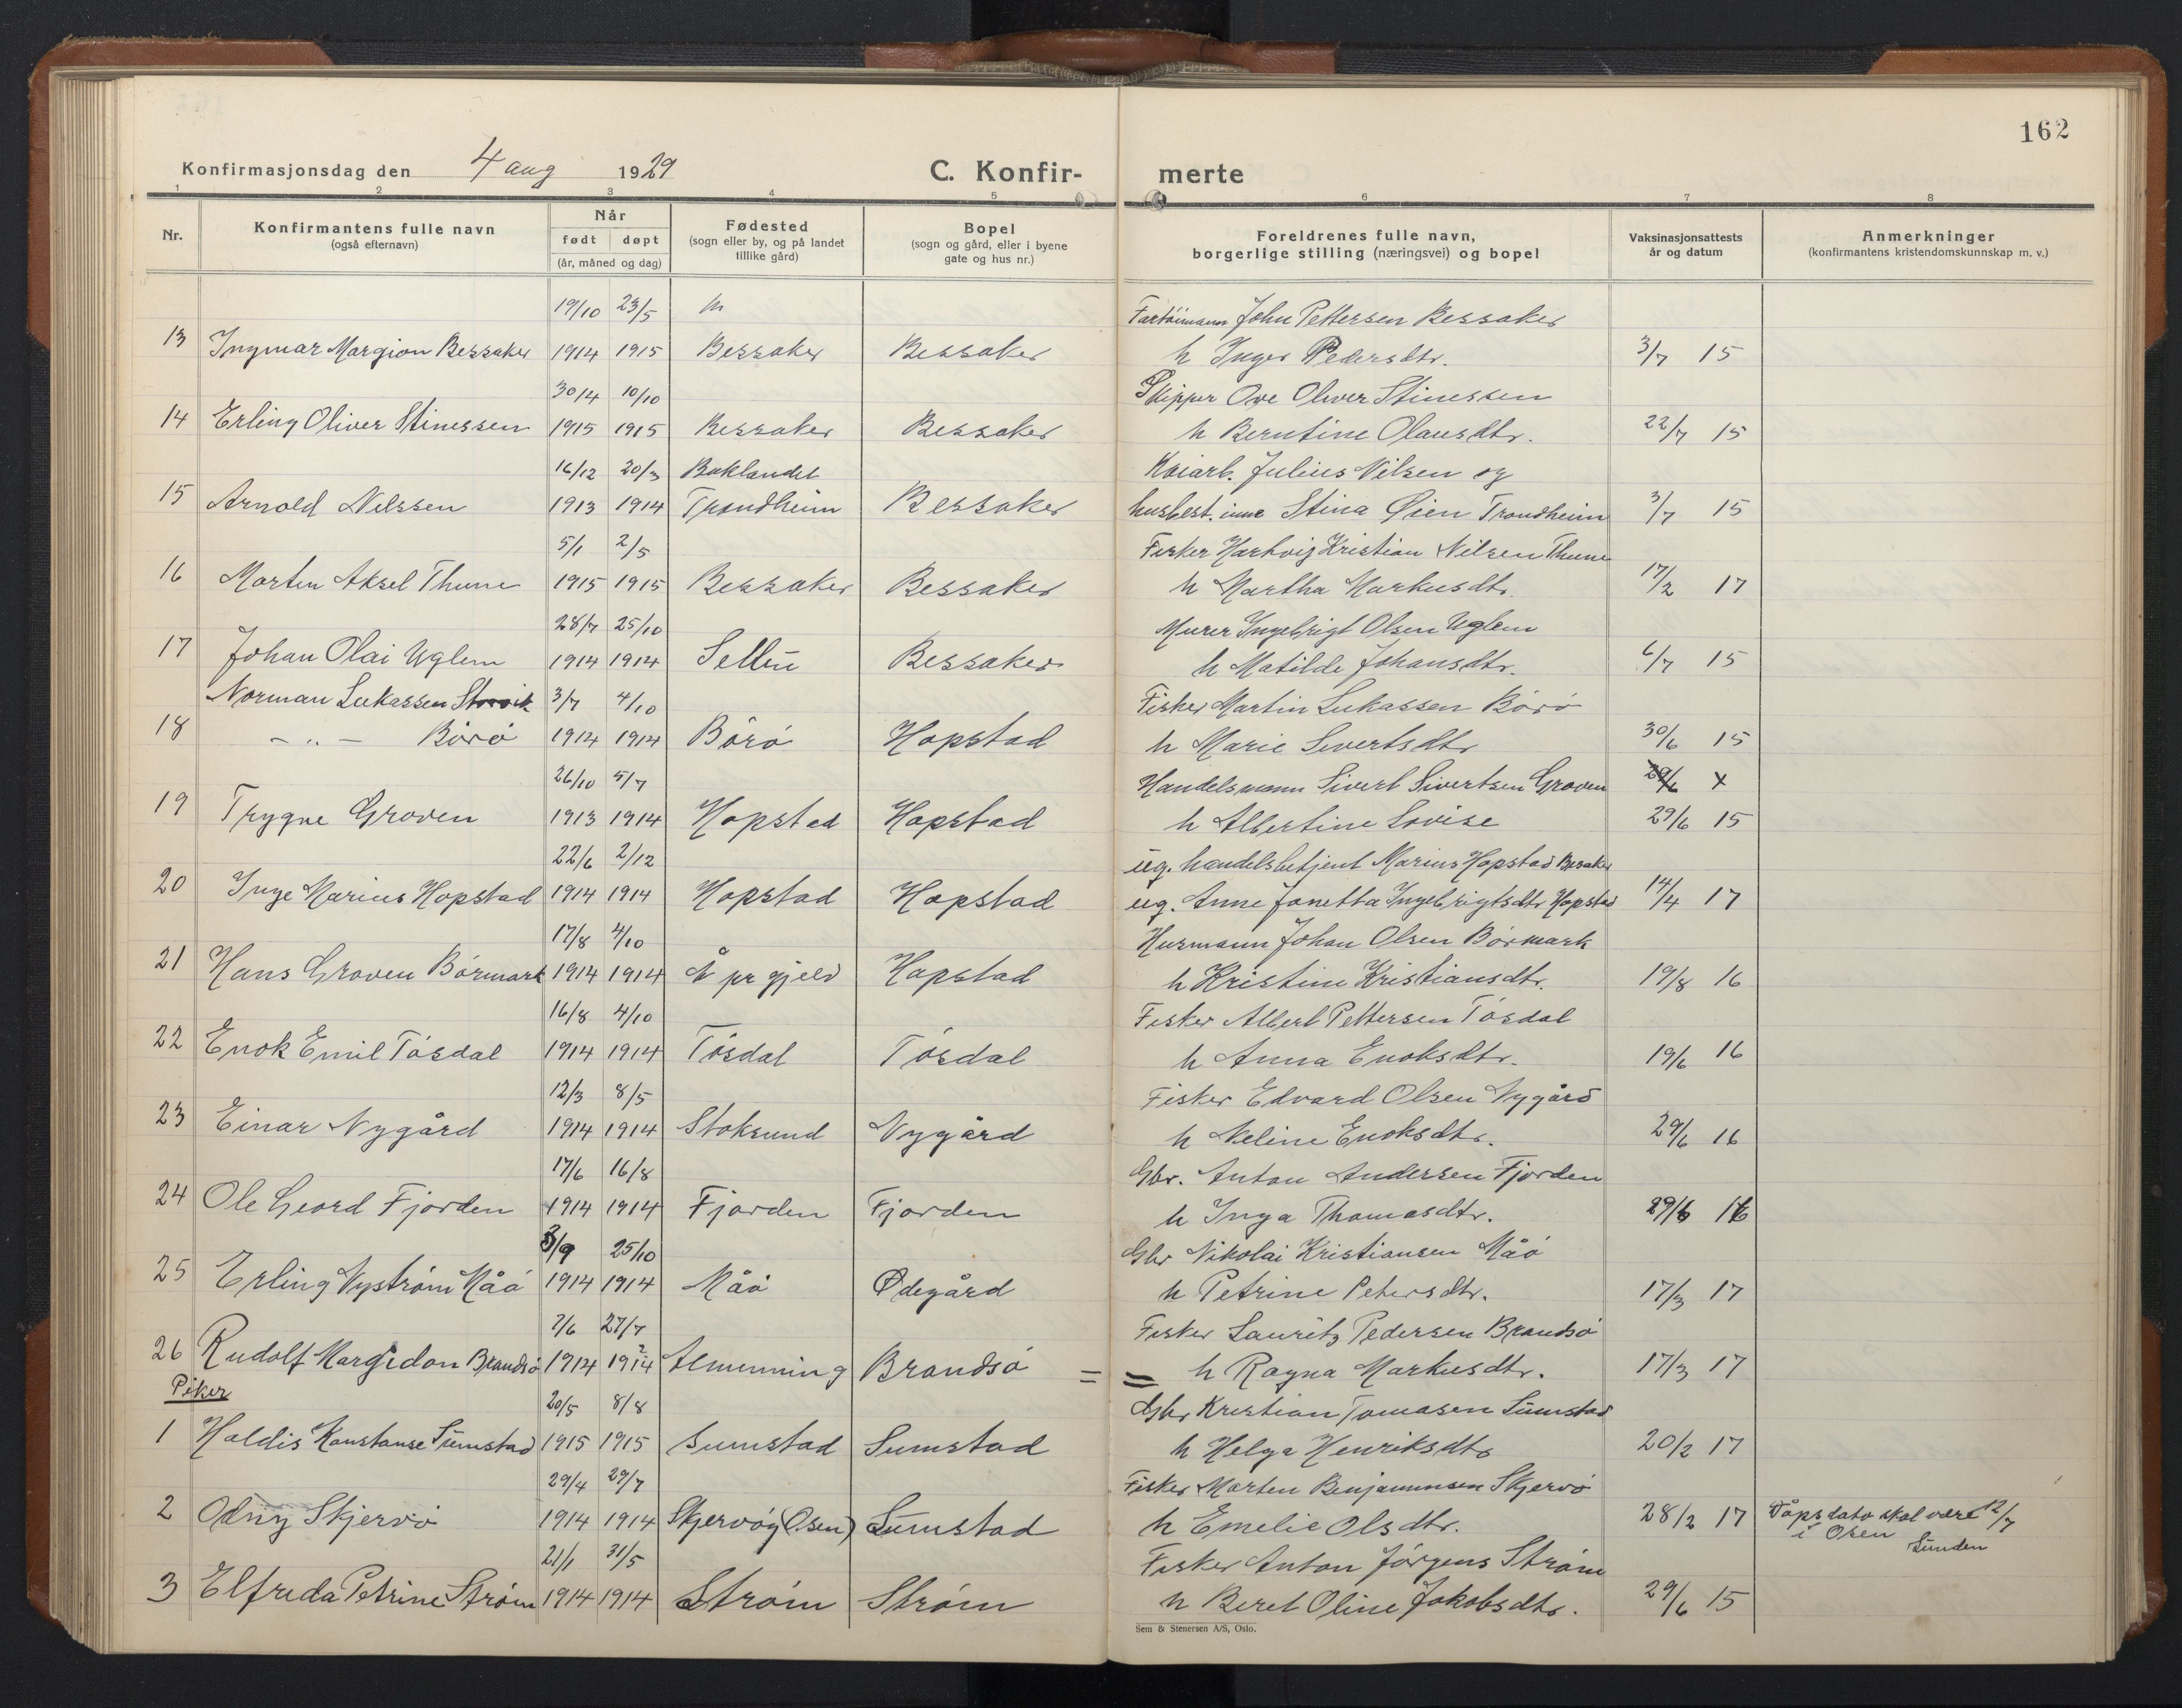 162
Konfirmasjonsdag den 4 aug 1929
C. Konfir- merte
1 2 3 4 5 6 7 8
Nr. Konfirmantens fulle navn (også efternavn) Når født døpt (år, måned og dag) Fødested (sogn eller by, og på landet tillike gård) Bopel (sogn og gård, eller i byene gate og hus nr.) Foreldrenes fulle navn, borgerlige stilling (næringsvei) og bopel Vaksinasjonsattests år og datum Anmerkninger (konfirmantens kristendomskunnskap m. v.)
19/10 23/5 John Pettersen Bessaker
13 Ingmar Margion Bessaker 1914 1915 Bessaker Bessaker h Inger Pedersdtr. 3/7 15
30/4 10/10 Skipper Ove Oliver Stinessen
14 Erling Oliver Stinessen 1915 1915 Bessaker Bessaker h Berntine Olausdtr. 22/7 15
16/12 20/3 Baklandet Kaiarb. Julius Nilsen og
15 Arnold Nilssen 1913 1914 Trondheim Bessaker husbest. inne Stina Øien Trondheim 3/7 15
5/1 2/5 Fisker Hartvig Kristian Nilsen Thune
16 Morten Aksel Thune 1915 1915 Bessaker Bessaker h Martha Markusdtr. 17/2 17
28/7 25/10 Murer Ingebrigt Olsen Uglem
17 Johan Olai Uglem 1914 1914 Bessaker h Matilde Johansdtr. 6/7 15
Norman Lukassen Storvik 3/7 4/10 Fisker Martin Lukassen Börö
18 - " - Börö 1914 1914 Börö Hopstad h Marie Sivertsdtr 30/6 15
26/10 5/7 Handelsmann Sivert Sivertsen Groven 29/6 x
19 Trygve Groven 1913 1914 Hopstad Hopstad h Albertine Lovise 29/6 15
22/6 2/12 ug. handelsbetjent Marius Hopstad Besaker
20 Inge Marius Hopstad 1914 1914 Hopstad Hopstad ug. Anne Janetta Ingebrigtsdtr Hopstad 14/4 17
17/8 4/10 Husmann Johan Olsen Börmark
21 Hans Groven Börmark 1914 1914 Å pr gjeld Hopstad h Kristine Kristiansdtr. 19/8 16
16/8 4/10 Fisker Albert Pettersen Tösdal
22 Enok Emil Tösdal 1914 1914 Tösdal Tösdal h Anna Enoksdtr. 19/6 16
12/3 8/5 Fisker Edvard Olsen Nygård
23 Einar Nygård 1914 1914 Stoksund Nygård h Neline Enoksdtr. 29/6 16
17/6 16/8 Gbr. Anton Andersen Fjorden
24 Ole Geord Fjorden 1914 1914 Fjorden Fjorden h Inga Thomasdtr. 29/6 16
3/9 25/10 Gbr Nikolai Kristiansen Måö
25 Erling Nyström Måö 1914 1914 Måö Ødegård h Petrine Petersdtr. 17/3 17
7/6 27/7 Fisker Lauritz Pedersen Brandsö
26 Rudolf Margidon Brandsö 1914 1914 Almenning Brandsö = = h Ragna Markusdtr. 17/3 17
Piker 20/5 8/8 Gbr Kristian Tomasen Sumstad
1 Haldis Konstanse Sumstad 1915 1915 Sumstad Sumstad h Helga Henriksdtr 20/2 17
29/4 29/7 Fisker Morten Benjaminsen Skjervö
2 Odny Skjervö 1914 1914 Skjervöy (Osen) Sumstad h Emelie Olsdtr. 28/2 17 Dåpsdato skal være 12/7
i Osen Sunden
21/1 31/5 Fisker Anton Jörgens Ström
3 Elfrida Petrine Ström 1914 1914 Ström Ström h Beret Oline Jakobsdtr. 29/6 15
Sem & Stenersen A/S, Oslo.